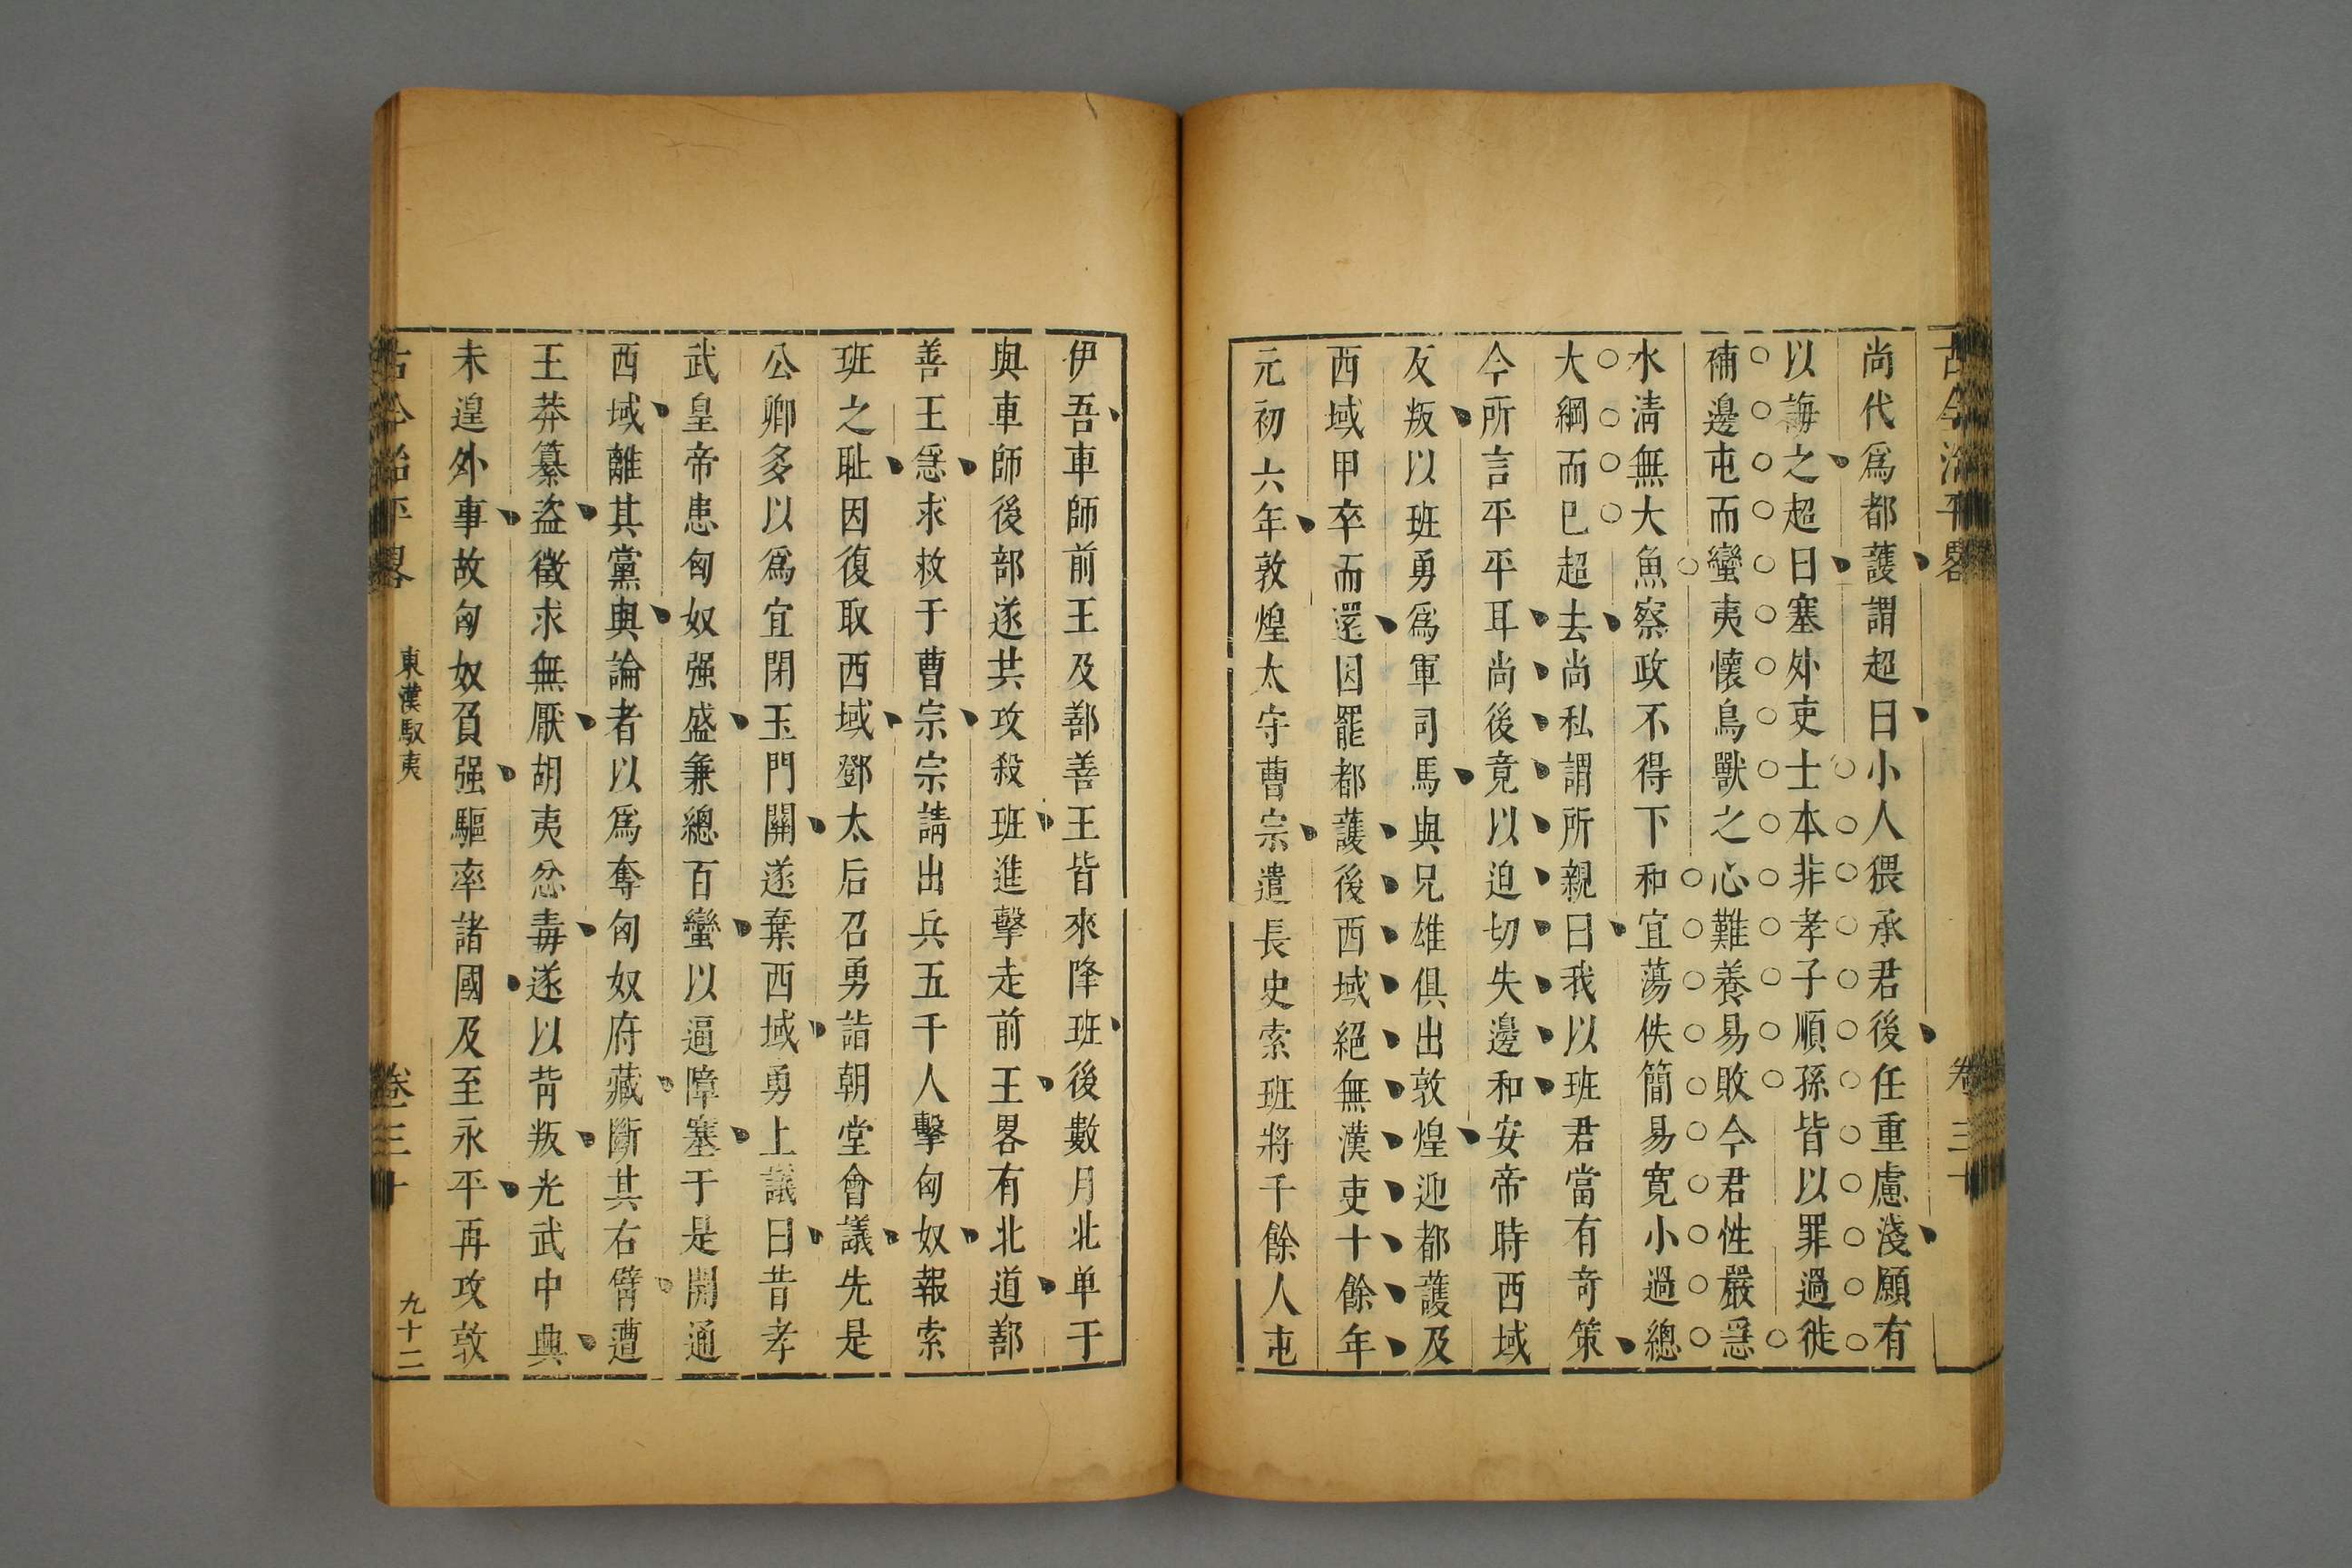 古今治平畧
卷三十
尚代爲都護謂超曰小人猥承君後任重慮淺願有
以誨之超曰塞外吏士本非孝子順孫皆以罪過徙
補邊屯而蠻夷懷鳥獸之心難養易敗今君性嚴急
水清無大魚察政不得下和宜蕩佚簡易寬小過總
大綱而已超去尚私謂所親曰我以班君當有奇策
今所言平平耳尚後竟以迫切失邊和安帝時西域
反叛以班勇爲軍司馬與兄雄俱出敦煌迎都護及
西域甲卒而還因罷都護後西域絕無漢吏十餘年
元初六年敦煌太守曹宗遣長史索班將千餘人屯
伊吾車師前王及鄯善王皆來降班後數月北单于
與車師後部遂共攻殺班進擊走前王畧有北道鄯
善王急求救于曹宗宗請出兵五千人擊匈奴報索
班之耻因復取西域鄧太后召勇詣朝堂會議先是
公卿多以爲宜閉玉門關遂棄西域勇上議曰昔孝
武皇帝患匈奴强盛兼總百蠻以逼障塞于是開通
西域離其黨與論者以爲奪匈奴府藏斷其右臂遭
王莽簒盜徵求無厭胡夷忿毒遂以背叛光武中興
未遑外事故匈奴負强驅率諸國及至永平再攻敦
古今治平畧
東漢馭夷
卷三十
九十二